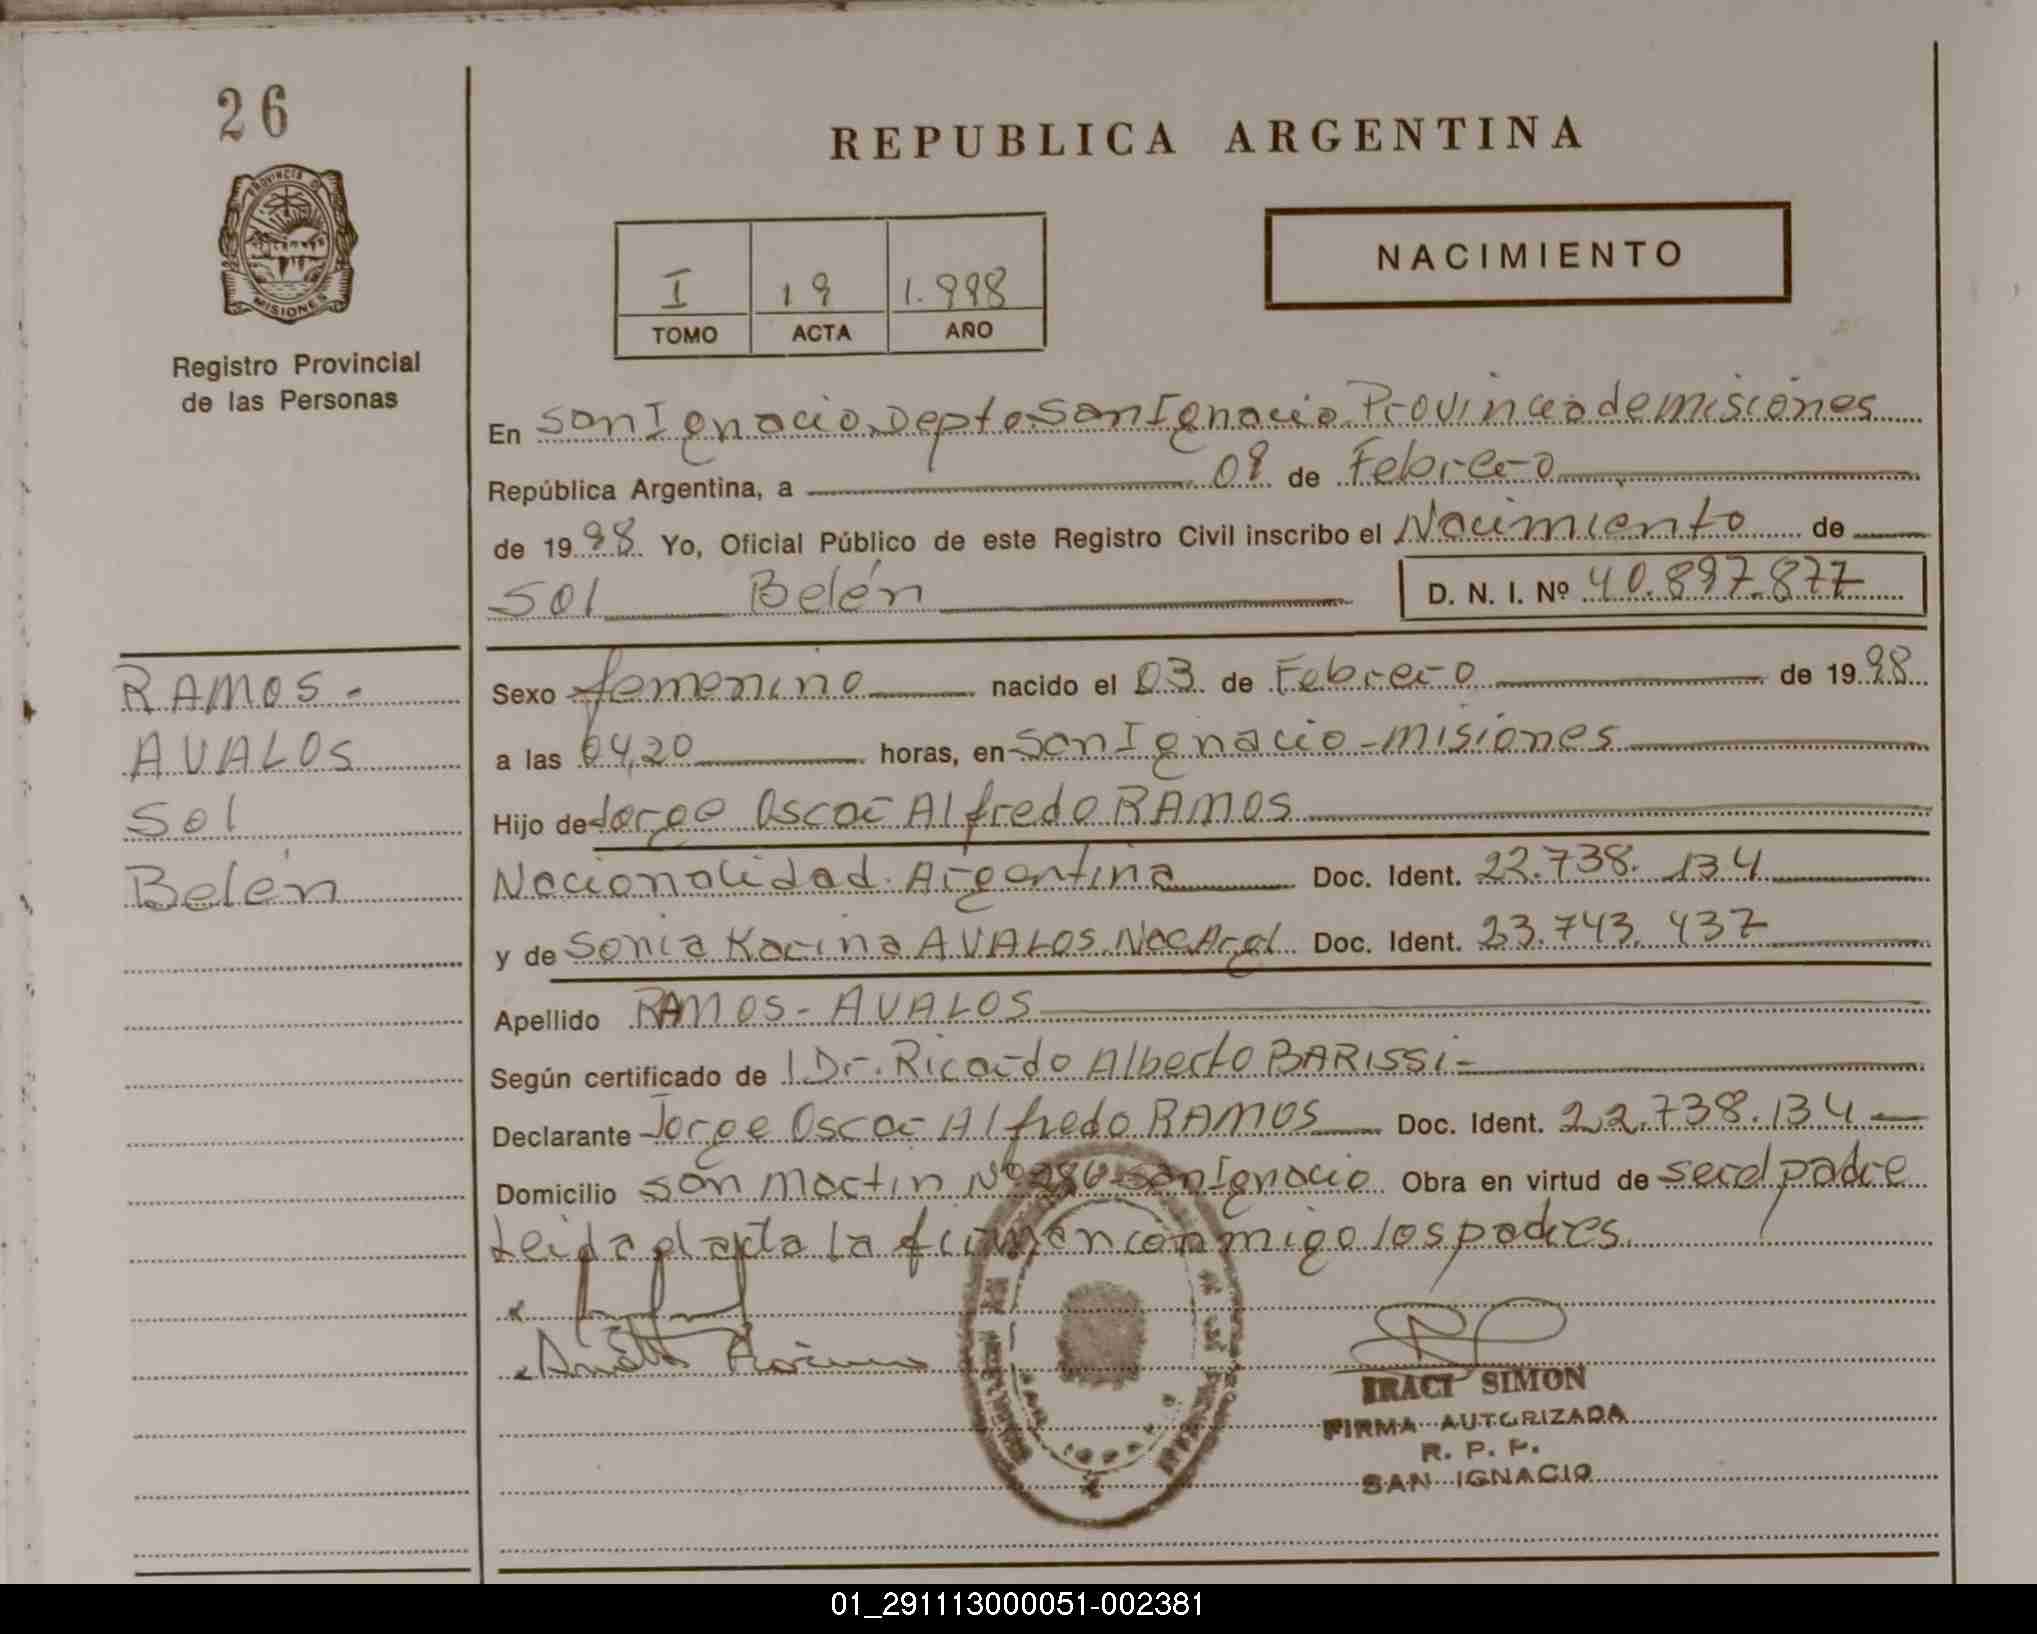 26
REPUBLICA ARGENTINA
PROVINCIA DE
MISIONES
Registro Provincial
de las Personas
I 19 1.998
TOMO ACTA AÑO
NACIMIENTO
En San Ignacio, Depto San Ignacio Provincia de misiones
República Argentina, a 09 de Febrero
de 1998. Yo, Oficial Público de este Registro Civil inscribo el Nacimiento de
Sol Belén D. N. I. Nº 40.897.877
RAMOS -
AVALOS
Sol
Belén
Sexo femenino nacido el 03 de Febrero de 1998
a las 04,20 horas, en San Ignacio - misiones
Hijo de Jorge Oscar Alfredo RAMOS
Nacionalidad Argentina Doc. Ident. 22.738.134
y de Sonia Karina AVALOS Nac Arg Doc. Ident. 23.743.437
Apellido RAMOS - AVALOS
Según certificado de l Dr. Ricardo Alberto BARISSI -
Declarante Jorge Oscar Alfredo RAMOS Doc. Ident. 22.738.134
Domicilio San Martin Nº San Ignacio Obra en virtud de ser el padre
Leida el acta la firman conmigo los padres
IRACI SIMON
FIRMA AUTORIZADA
R. P. P.
SAN IGNACIO
01_291113000051-002381